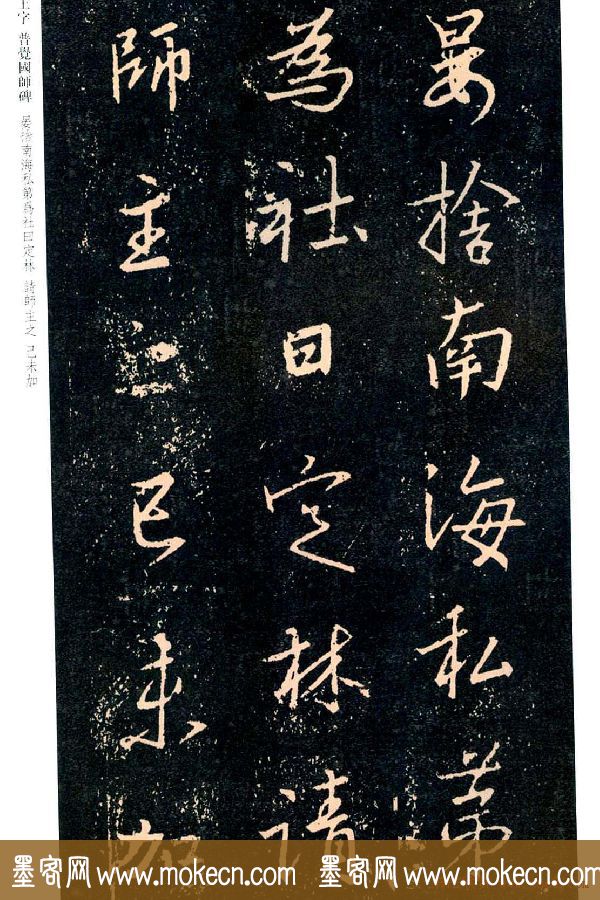 晏捨南海私第
為社曰定林請
師主之己未如
王字 普覺國師碑 晏捨南海私第為社曰定林 請師主之 己未如
墨客网 www.mokecn.com 墨客网 www.mokecn.com